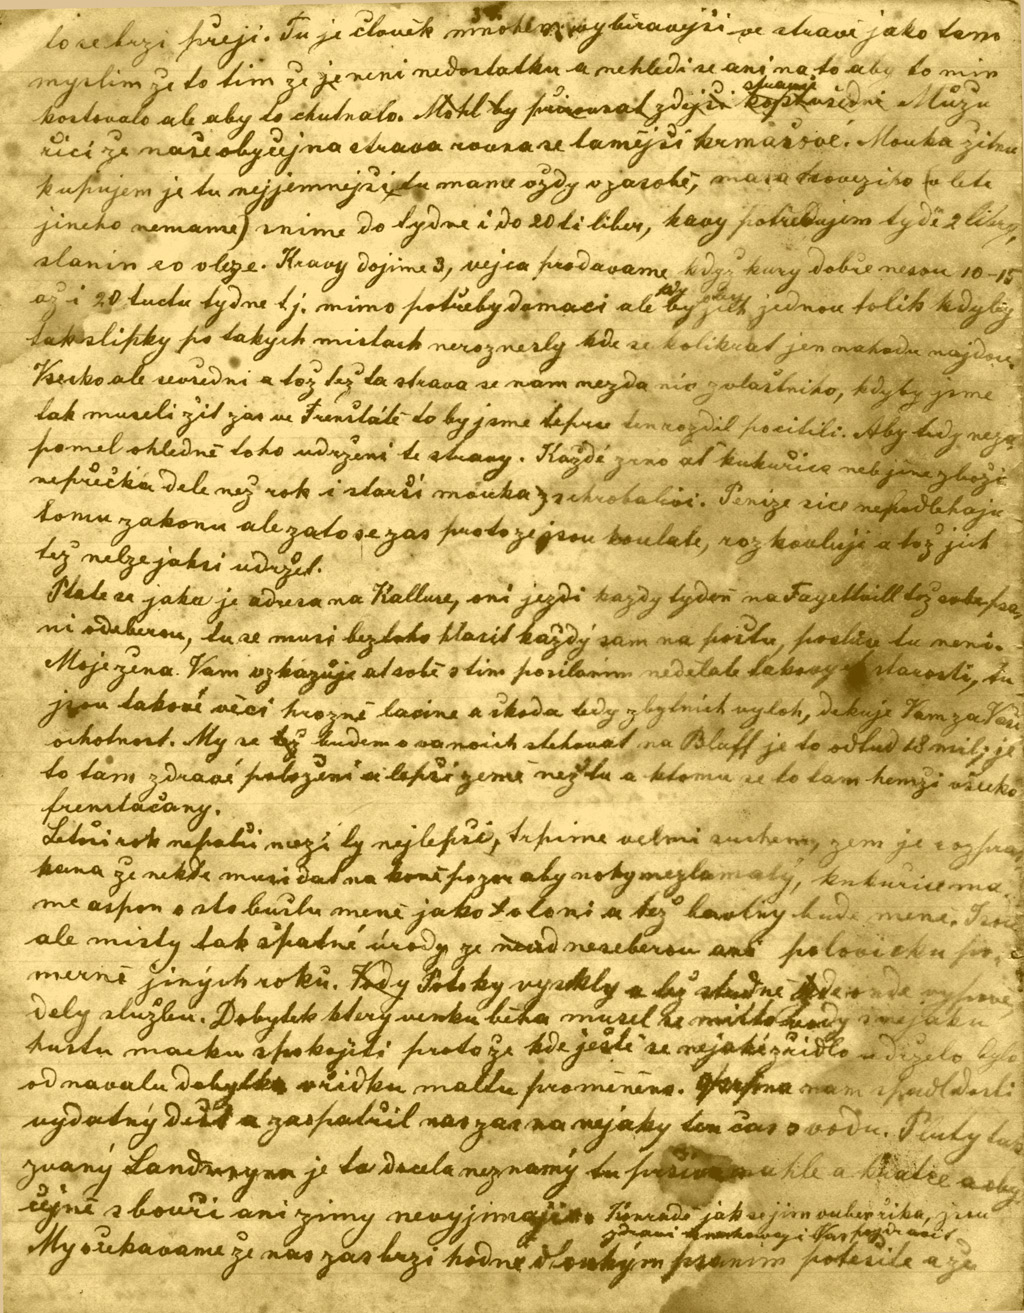 to se brzi přeji. Tu je člověk mnohem vybiravejši ve stravě jako tam
myslim že to tim že je neni nedostatku a nehledi se ani na to aby to min
kostovalo ale aby to chutnalo. Mohl by přirovnat zdejši stravu všedni Mužu
řici že naše obyčejna strava rovna se tamějši krmašové. Mouka žitna
kupujem je tu nejjemnejši, tu mame vždy v zasobě, masa hoveziho (v lete
jineho nemame) snime do tydne i do 20 ti liber, kavy potřebujem tydě 2 libry,
slanin co vleze. Kravy dojime 3, vejca prodavame když kury dobře nesou 10-15
až i 20 tuctu tydne tj. mimo potřeby domaci ale by jich jednou tolik kdyby
tak slipky po takych mistach neroznesly kde se kolikrat jen nahodu najdou.
Vsecko ale sevsedni a tož tež ta strava se nam nezda nic zvlaštniho, kdyby jsme
tak museli žit zas ve Frenštátě to by jsme teprve ten rozdil pocitili. Aby tedy neza
pomel ohledně toho udrženi te stravy. Každé zrno ať kukuřice neb jine zboži
nepřečká dele než rok i starši mouka zechrobalivi. Penize sice nepodlehaji
tomu zakonu ale zato se zas protože jsou koulate, rozkouluji a tož jich
tež nelze jaksi udržet.
Ptate se jaka je adresa na Kalluse, oni jezdi kazdy tydeň na Fayettvill tož sobe psa
ni odeberou, tu se musi beztoho hlasit každý sam na poštu, poslice tu neni.
Moje žena Vam vzkazuje at sobě s tim posilanim nedělate takovych starosti, tu
jsou takové věci hrozně lacine a škoda tedy zbytnich vyloh, dekuje Vam za Vaši
ochotnost. My se tež budem o vanoich stehovat na Bluff je to odtud 18 mil, je
to tam zdravé položeni a lepši země než tu a ktomu se to tam hemži všecko
frenstačany.
Letši rok nepatři mezi ty nejlepši, trpime velmi suchem, zem je rozpras
kana že nekde musi dat na koně pozor aby nohy nezlamaly, kukuřice ma
me aspon o sto bušlu meně jako loni a tež bavlny bude mene. Jsou
ale misty tak špatné úrody že neseberou ani polovicku po
merně jiných roků. Vody Potoky vyschly a tež studně kde onde vypově
dely službu. Dobytek ktery venku běha musel se misto vody s nejaku
hustu macku spokojiti protože kde ješťe se nejaké zřidlo udrželo bylo
od navalu dobytka v řidku maltu proměněno. nam spadl dosti
vydatný dešť a zaopatřil nas zas na nejaky ten čas s vodu. Pluty tak
zvaný Landregen je ta docela neznamý tu prši nahle a kratce a oby
čejně s bouři ani zimy nevyjimajic. Konradě jak se jim vubeřika, jsou
zdravi a vzkazuji Vas pozdravit
My očekavame že nas zas brzi hodně dlouhým psanim potešite a že